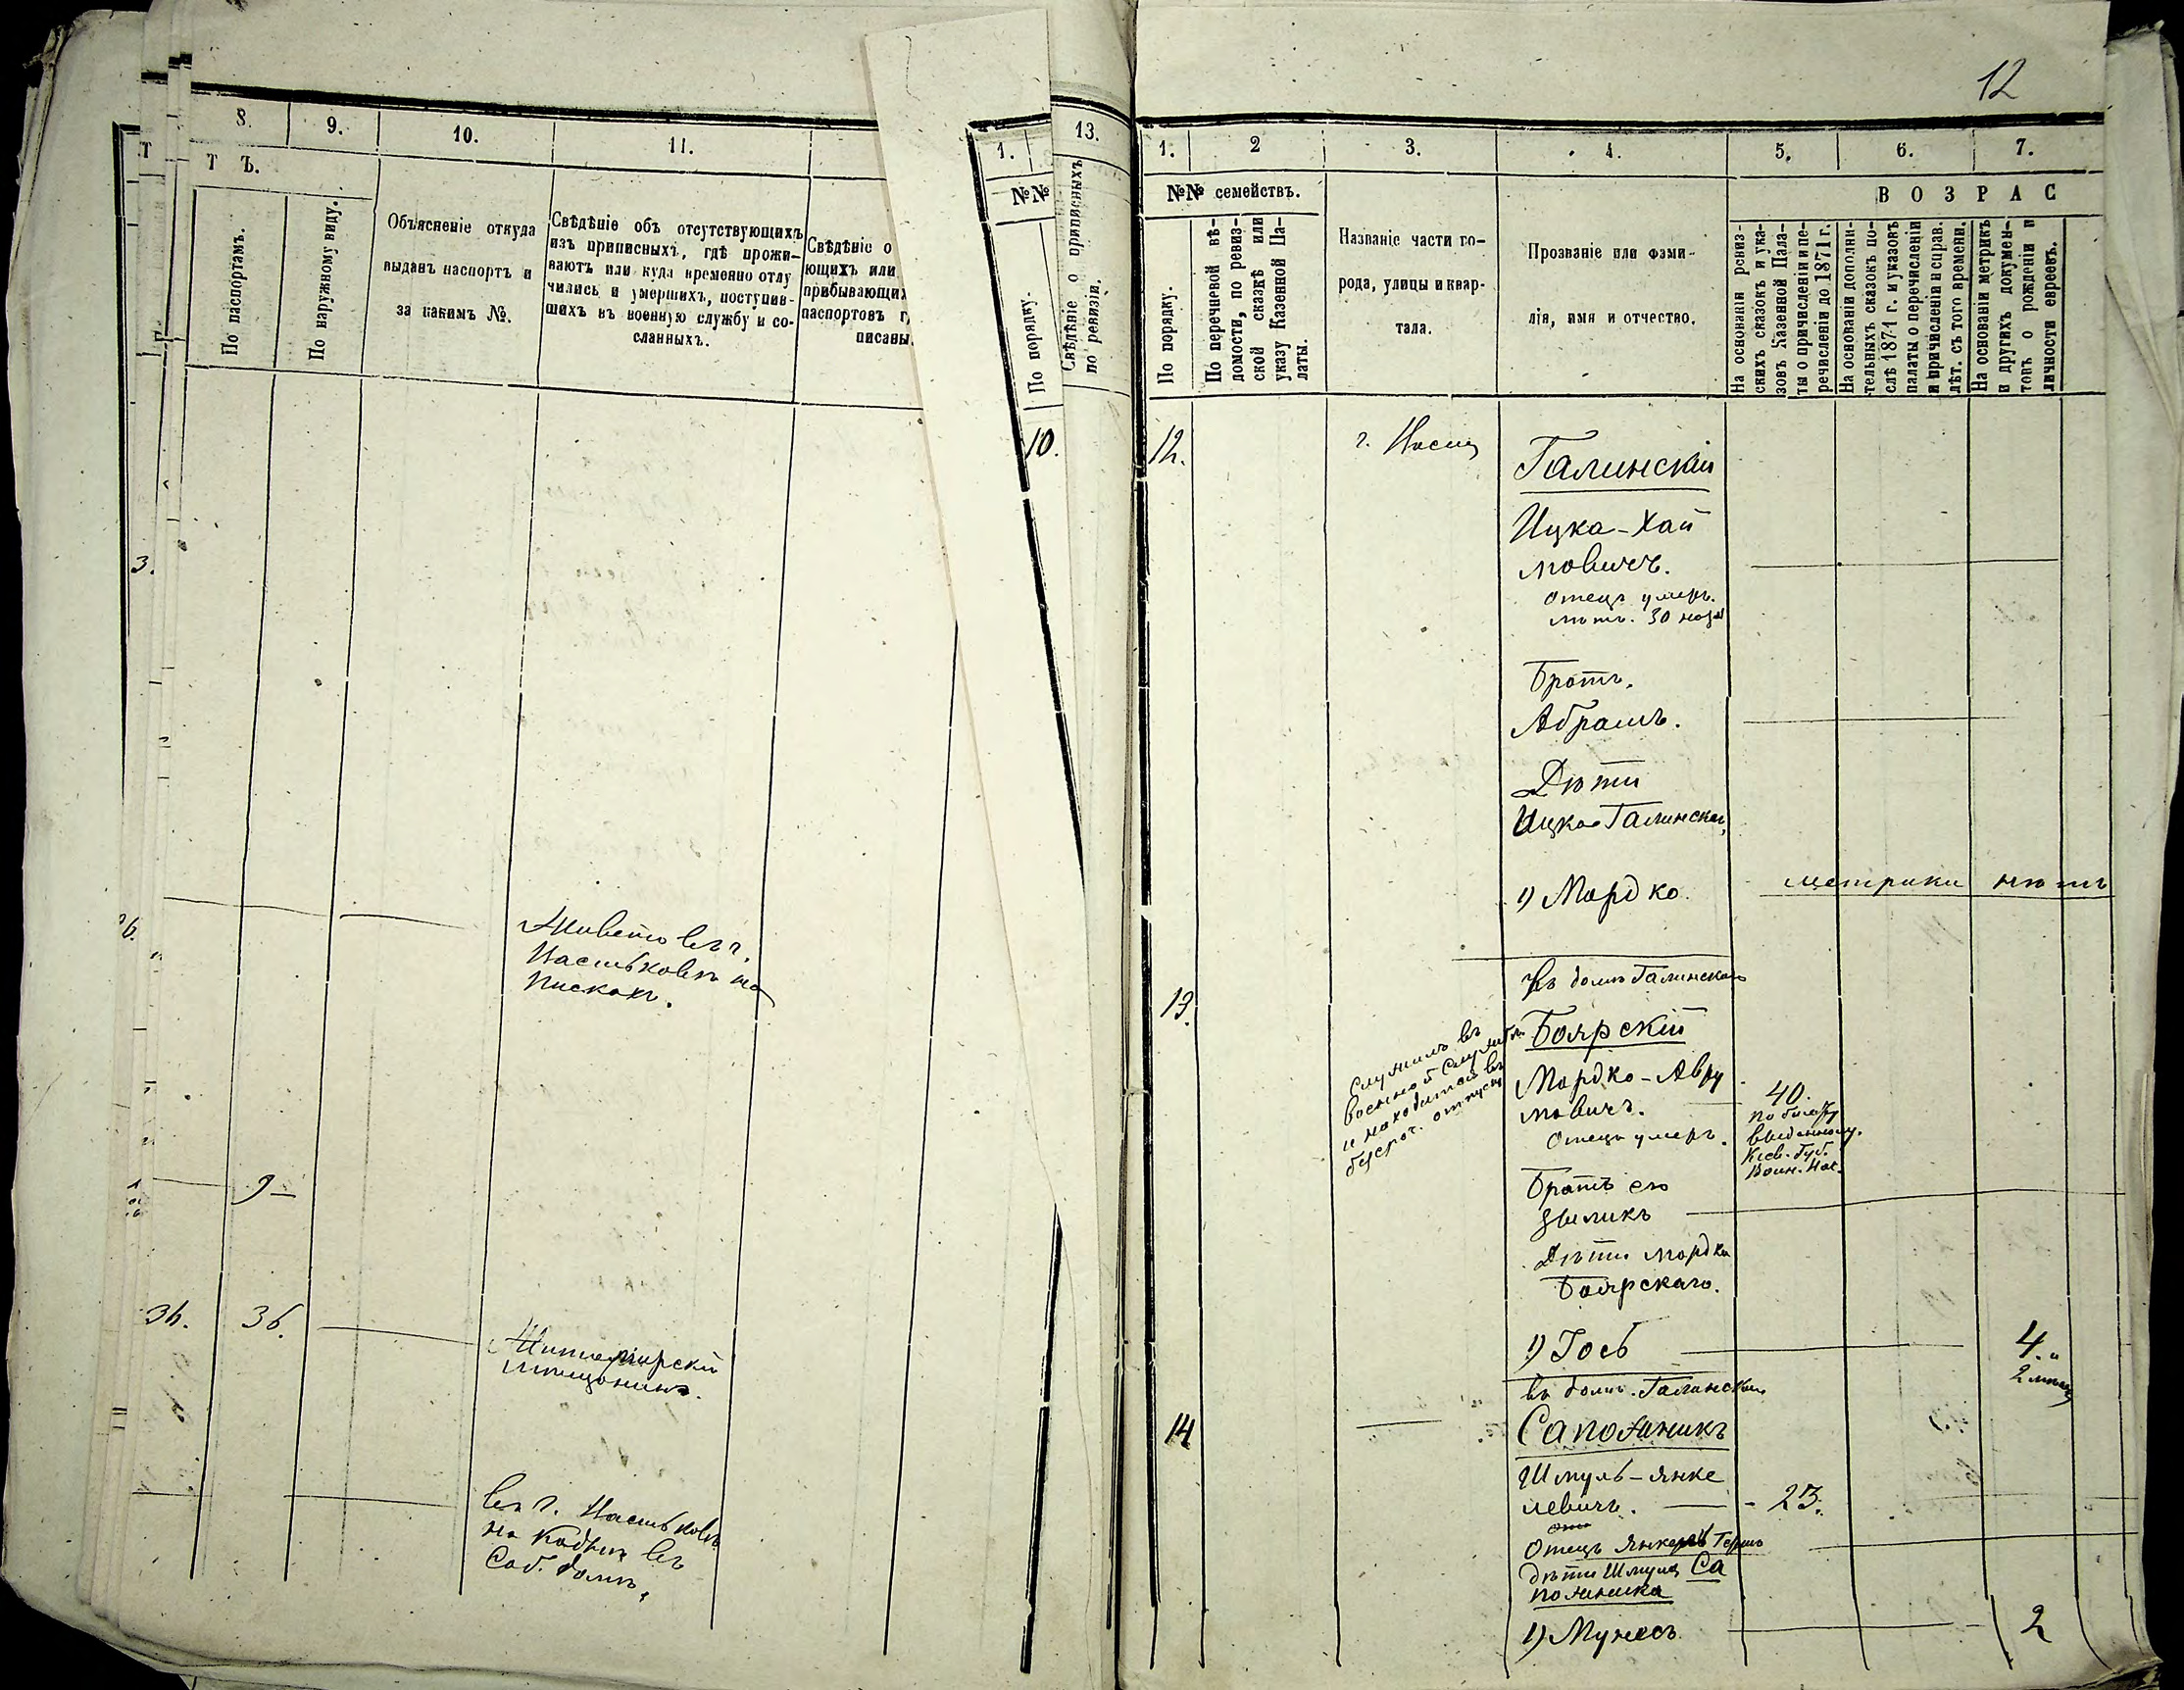 8.
9.
10.
11.
Т Ъ.
По паспортамъ.
По наружному виду.
Объясненіе откуда
выданъ паспортъ и
за какимъ №.
Свѣдѣніе объ отсутствующихъ
изъ приписныхъ, гдѣ прожи-
ваютъ или куда временно отлу
чились и умершихъ, поступив-
шихъ въ военную службу и со-
сланныхъ.
Свѣдѣніе о
ющихъ или
прибывающи
паспортовъ г
писаны
3.
Живетъ въ г.
Васильковѣ на
Пискахъ.
9 –
36.
36.
Житомірскій
мѣщанинъ.
въ г. Васильковѣ
на
въ
Соб. домѣ.
1.
№№
По порядку.
10.
13.
Свѣдѣніе о приписныхъ
по ревизіи.
12
1.
2
3.
4.
5.
6.
7.
№№ семействъ.
В О З Р А С
По порядку.
По перечневой вѣ-
домости, по ревиз-
ской сказкѣ или
указу Казенной Па-
латы.
Названіе части го-
рода, улицы и квар-
тала.
Прозваніе или фами-
лія, имя и отчество.
На основаніи ревиз-
скихъ сказокъ и ука-
зовъ Казенной Пала-
ты о причисленіи и пе-
речисленіи до 1871 г.
На основаніи дополни-
тельныхъ сказокъ по-
слѣ 1871 г. и указовъ
палаты о перечисленіи
и причисленіи и справ.
лѣт. съ того времени.
На основаніи метрикъ
и другихъ докумен-
товъ о рожденіи и
личности евреевъ.
12.
г.
Галинскій
Ицка-Хай
мовичъ.
отецъ умеръ.
лѣтъ. 30 назад
Братъ.
Абрамъ.
Дѣти
Ицка Галинскаго
1) Мордко.
метрики нѣтъ
13.
въ домѣ Галинскаго
Боярскій
Мордко-Авру
мовичъ.
Отецъ умеръ.
Служилъ въ
военной службѣ
и находится въ
безсроч. отпуску
40.
по билету
выданному.
Кіев. Губ.
Воин. Нач.
Братъ его
Зыликъ
Дѣти Мордка
Боярскаго.
1) Іось
4.
2 мѣсяц
въ домѣ. Галинскаго
14
Сапожникъ
Шмуль-Янке
левичъ.
23.
Отецъ Янкель Герш
дѣти Шмуля Са
пожника
1) Мунесъ
2